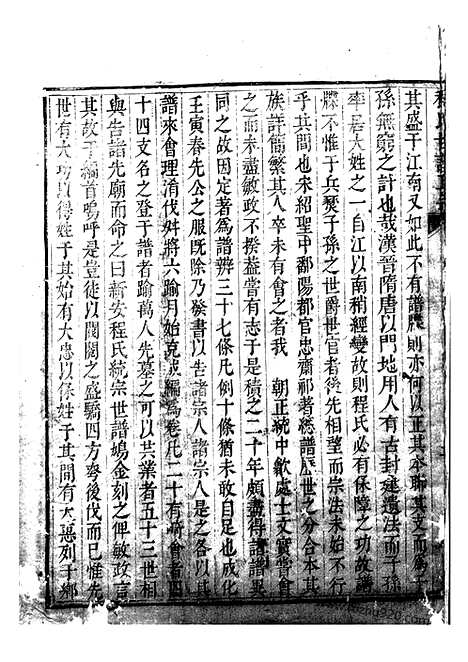 其盛于江南又如此不有譜牒則亦何以正其本聯其支而為子
孫無窮之計也哉漢晉隋唐以門地用人有古封建遺法而子孫
率居大姓之一自江以南稍經變故則程氏必有保障之功故譜
牒不惟于兵燹子孫之世爵世官者後先相望而宗法未始不行
乎其間也宋紹聖中鄱陽都官忠肅祁者總譜歷世之分合本其
族詳簡繁其人卒未有會之者我 朝正統中歙處士文實嘗會
之而未盡敏政不揆益嘗有志于是積之二十年頗盡得諸譜異
同之故因定著為譜辨三十七條凡例十條猶未敢自足也成化
壬寅春先公之服既除乃發書以告諸宗人諸宗人是之各以其
譜來會理淆伐舛將六踰月始克成編為卷凡二十有奇會者四
十四支名之登于譜者踰萬人先墓之可以共業者五十三世相
與告諸先廟而命之曰新安程氏統宗世譜鳩金刻之俾敏政言
其故于編首嗚呼是豈徒以閥閱之盛驕四方夸後伐而已惟先
世有大功以得姓于其始有大忠以保姓于其間有大惠列于鄉